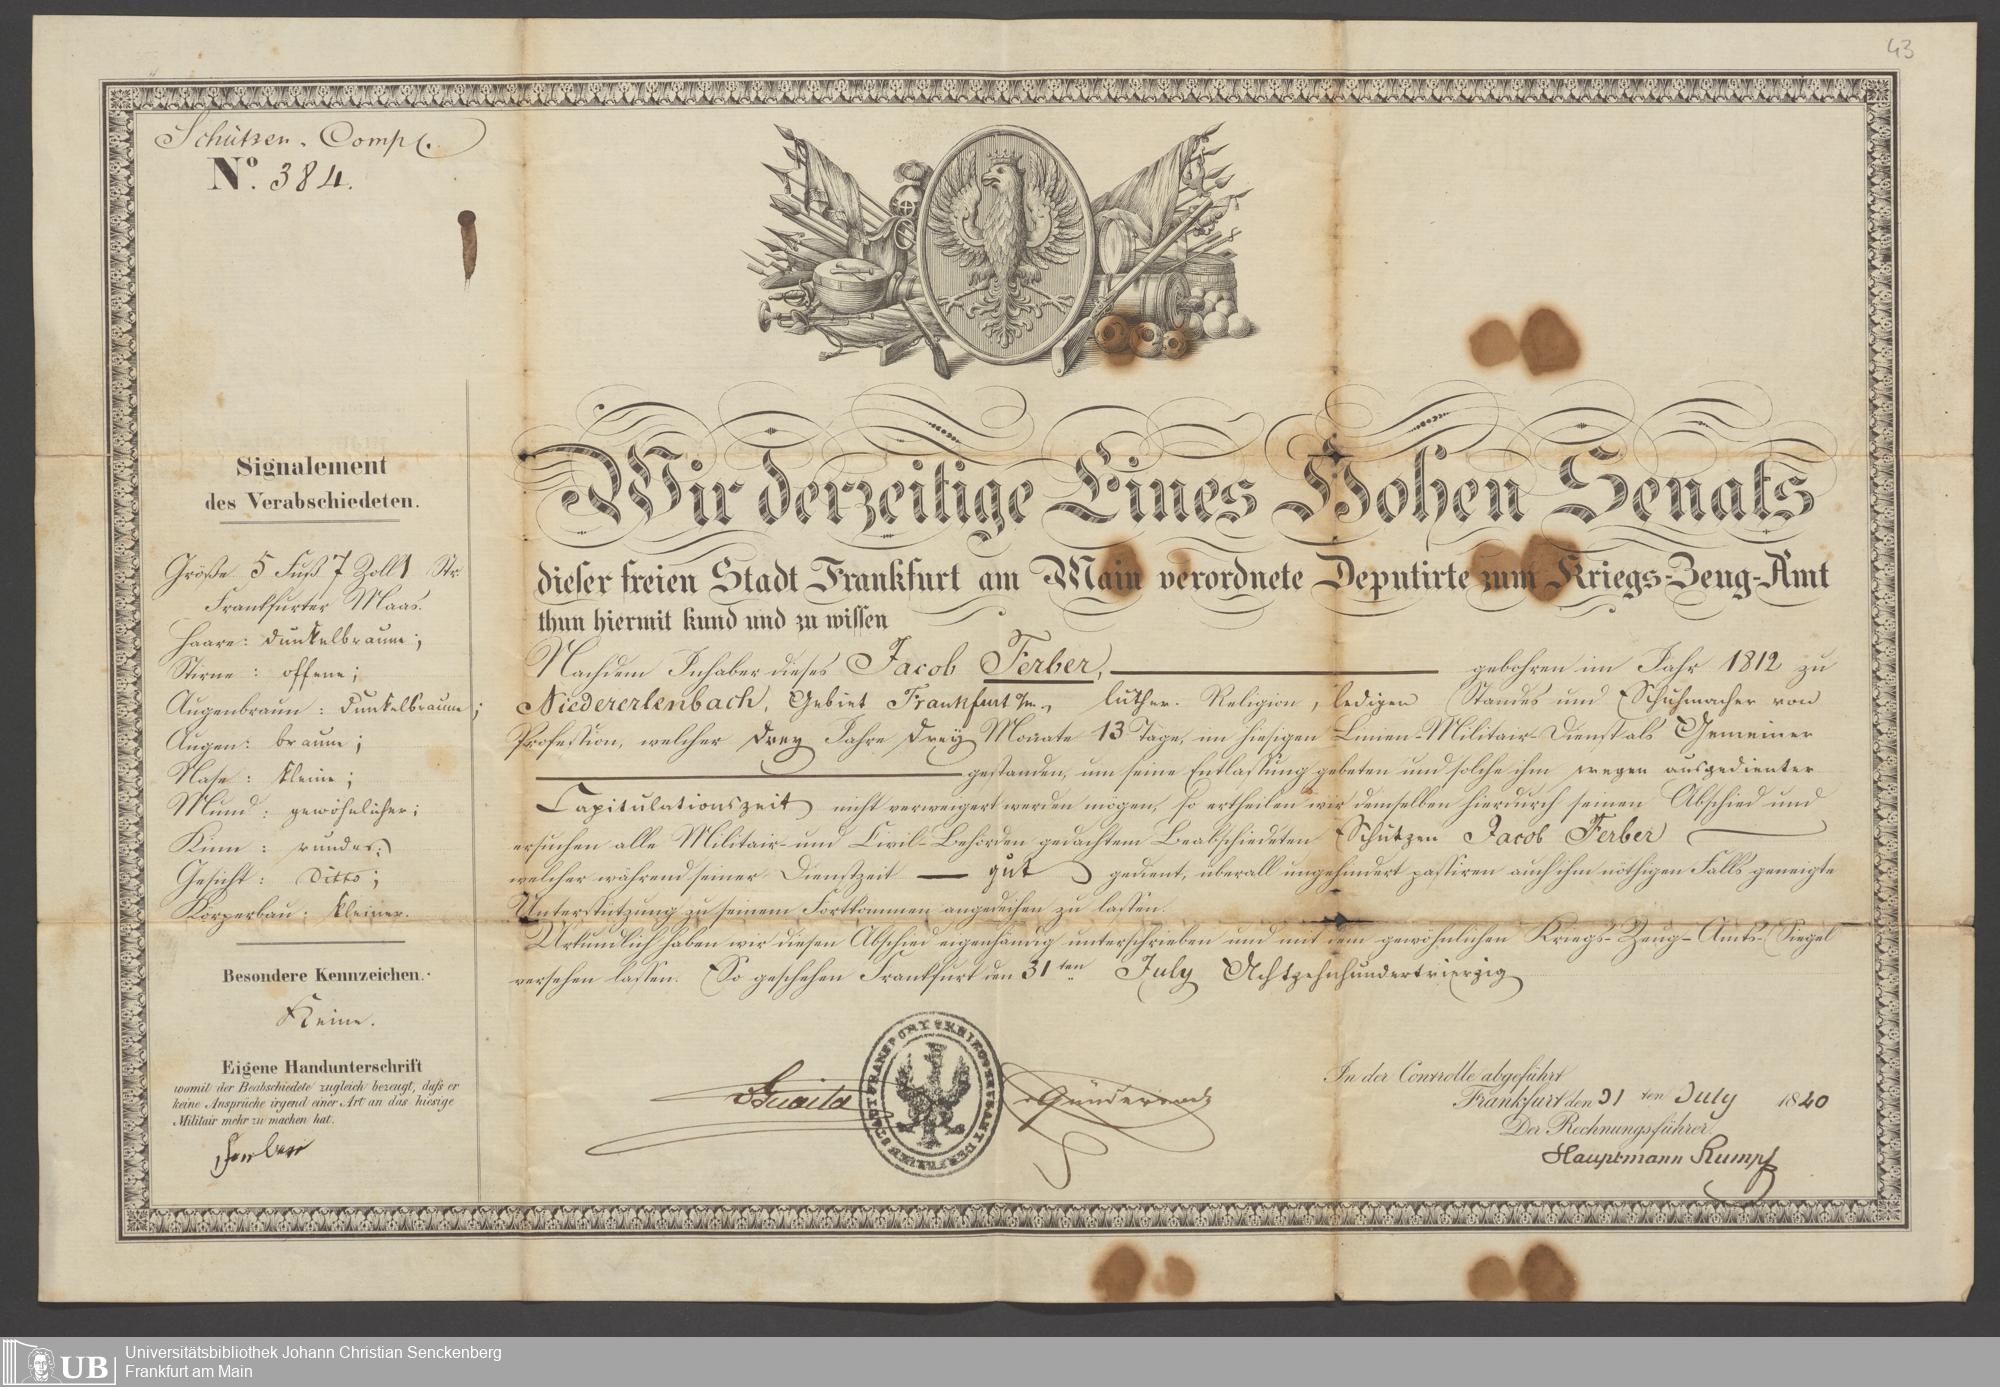 43
Schützen-Comp.
Nº. 384.
Signalement
des Verabschiedeten.
Größe 5 Fuß 7 Zoll 1 Str.
Frankfurter Maas.
Haare: dunkelbraune;
Stirne: offene;
Augenbraun: dunkelbraune;
Augen: braune;
Nase: kleine;
Mund: gewöhnlicher;
Kinn: rundes;
Gesicht: Ditto;
Körperbau: kleiner.
Besondere Kennzeichen.
Keine.
Eigene Handunterschrift
womit der Beabschiedete zugleich bezeugt, daſs er
keine Ansprüche irgend einer Art an das hiesige
Militair mehr zu machen hat.
Ferber
Wir derzeitige Eines Hohen Senats
dieser freien Stadt Frankfurt am Main verordnete Deputirte zum Kriegs-Zeug-Amt
thun hiermit kund und zu wissen
Nachdem Inhaber dieses Jacob Ferber, gebohren im Jahr 1812 zu
Niedererlenbach, Gebiet Frankfurt a/m., luther. Religion, ledigen Standes und Schuhmacher von
Profession, welcher drey Jahre drey Monate 13 Tage, im hiesigen Linien-Militair-Dienst als Gemeiner
gestanden, um seine Entlassung gebeten und solche ihm wegen ausgedienter
Capitulationszeit nicht verweigert werden mögen, so ertheilen wir demselben hierdurch seinen Abschied und
ersuchen alle Militair- und Civil-Behörden gedachtem Beabschiedeten Schützen Jacob Ferber
welcher während seiner Dienstzeit gut gedient, überall ungehindert passiren auch ihm nöthigen Falls geneigte
Unterstützung zu seinem Fortkommen angedeihen zu lassen.
Urkundlich haben wir diesen Abschied eigenhändig unterschrieben und mit dem gewöhnlichen Kriegs-Zeug-Amts-Siegel
versehen lassen. So geschehen Frankfurt den 31ten July Achtzehnhundertvierzig
Guaita
Günderrode
In der Controlle abgeführt
Frankfurt den 31ten July 1840
Der Rechnungsführer.
Hauptmann Rumpf
UB
Universitätsbibliothek Johann Christian Senckenberg
Frankfurt am Main